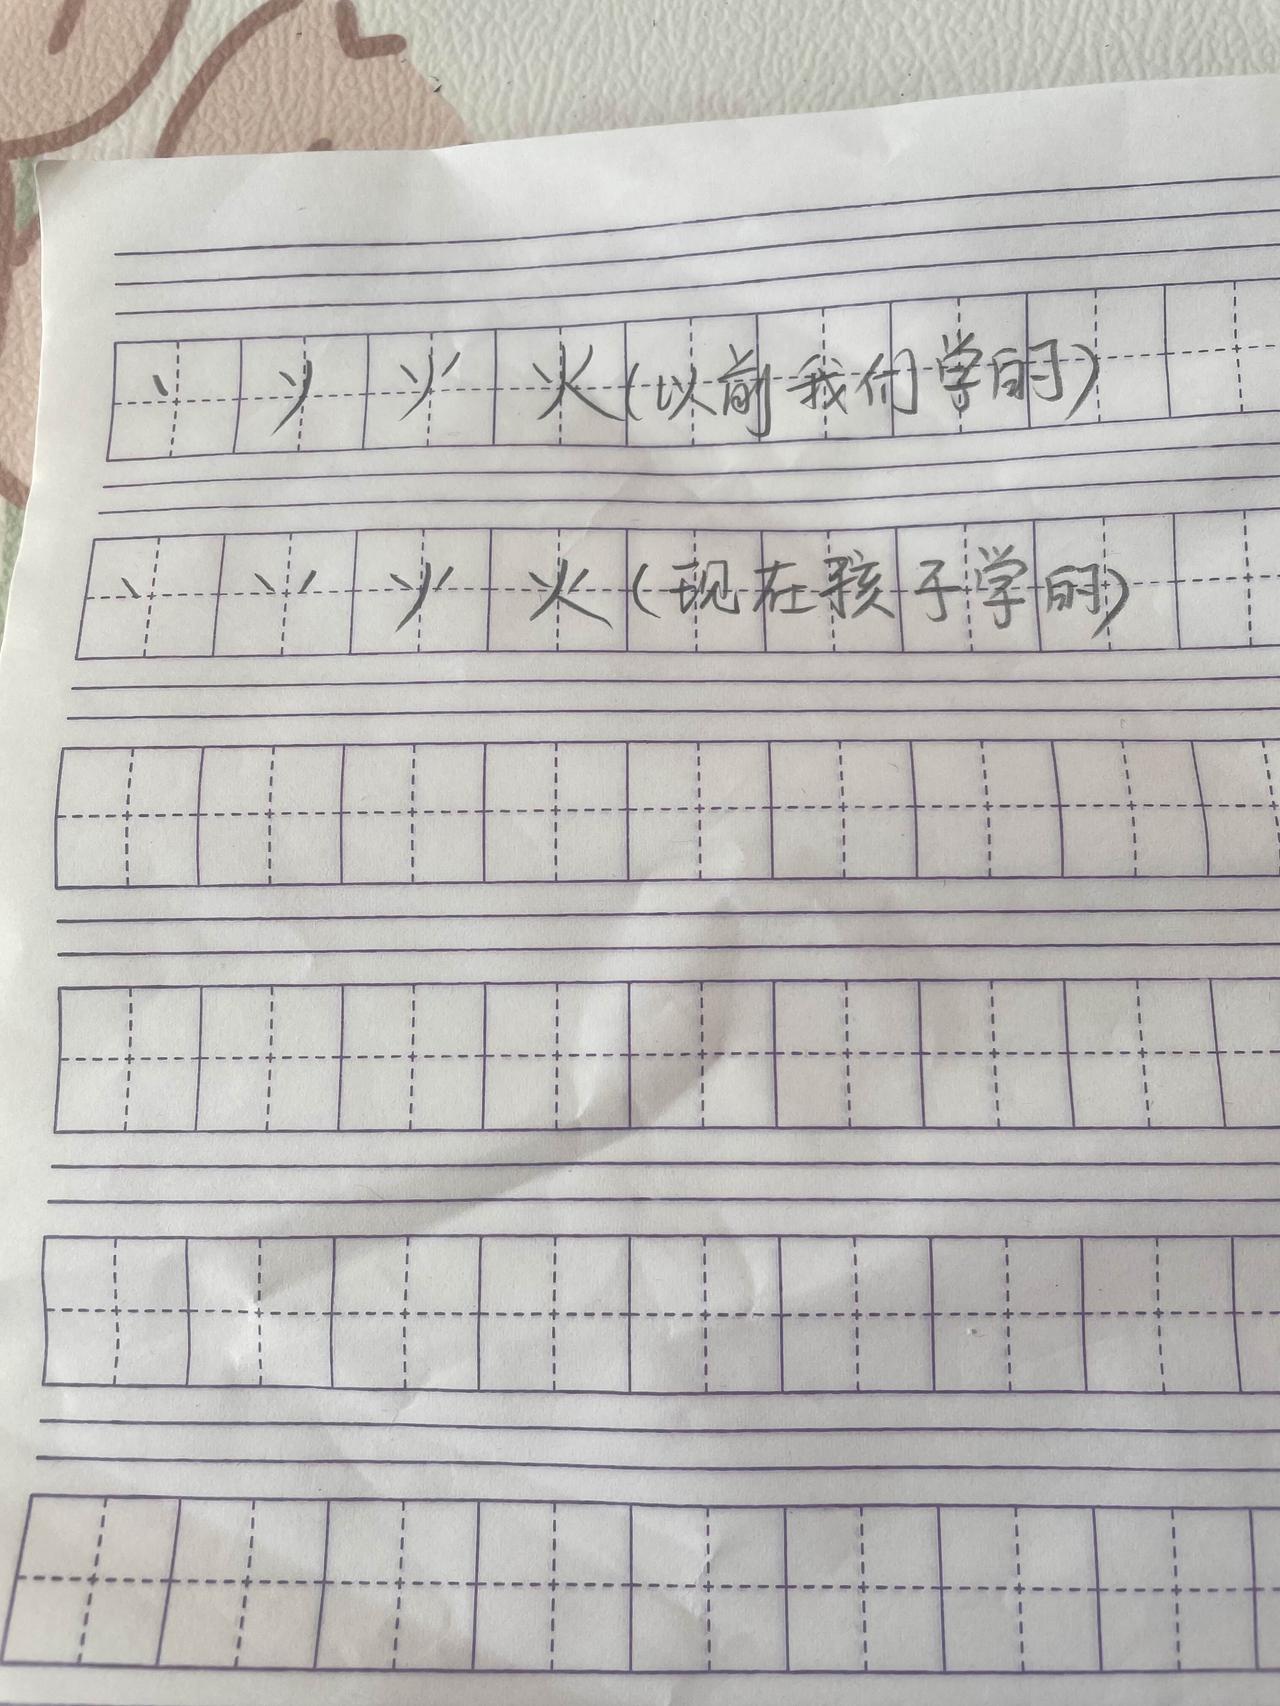 丶 丷 火 (以前我们学的)
丶 丷 火 (现在孩子学的)